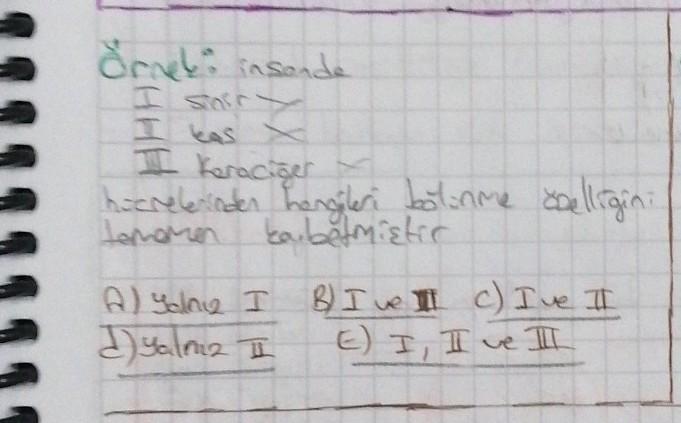 Örnek: insanda
I sinir
I kas
III Karaciğer
hücrelerinden hangileri bölünme özelliğini
tamamen kaybetmiştir
A) yalnız I B) I ve III C) I ve II
d) yalnız II E) I, II ve III